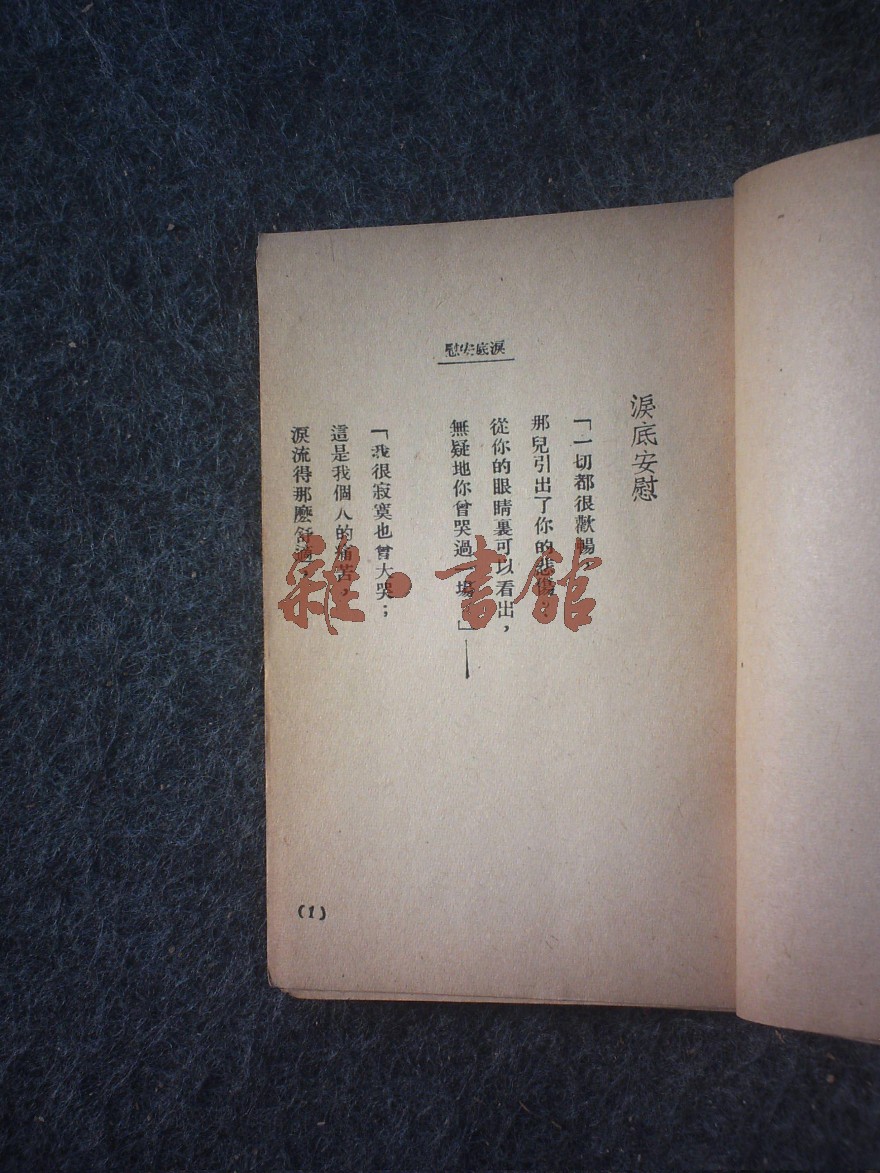 慰安底淚
淚底安慰
「一切都很歡暢
那兒引出了你的悲傷
從你的眼睛裏可以看出，
無疑地你曾哭過一場」——
「我很寂寞也曾大哭；
這是我個人的痛苦，
淚流得那麽舒適，
(1)
雜·書館